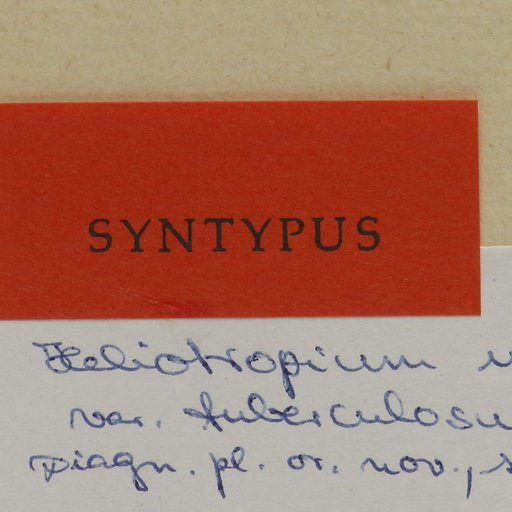 SYNTYPUS
Heliotropium
var. tuberculosu
Diagn. pl. or. nov., s